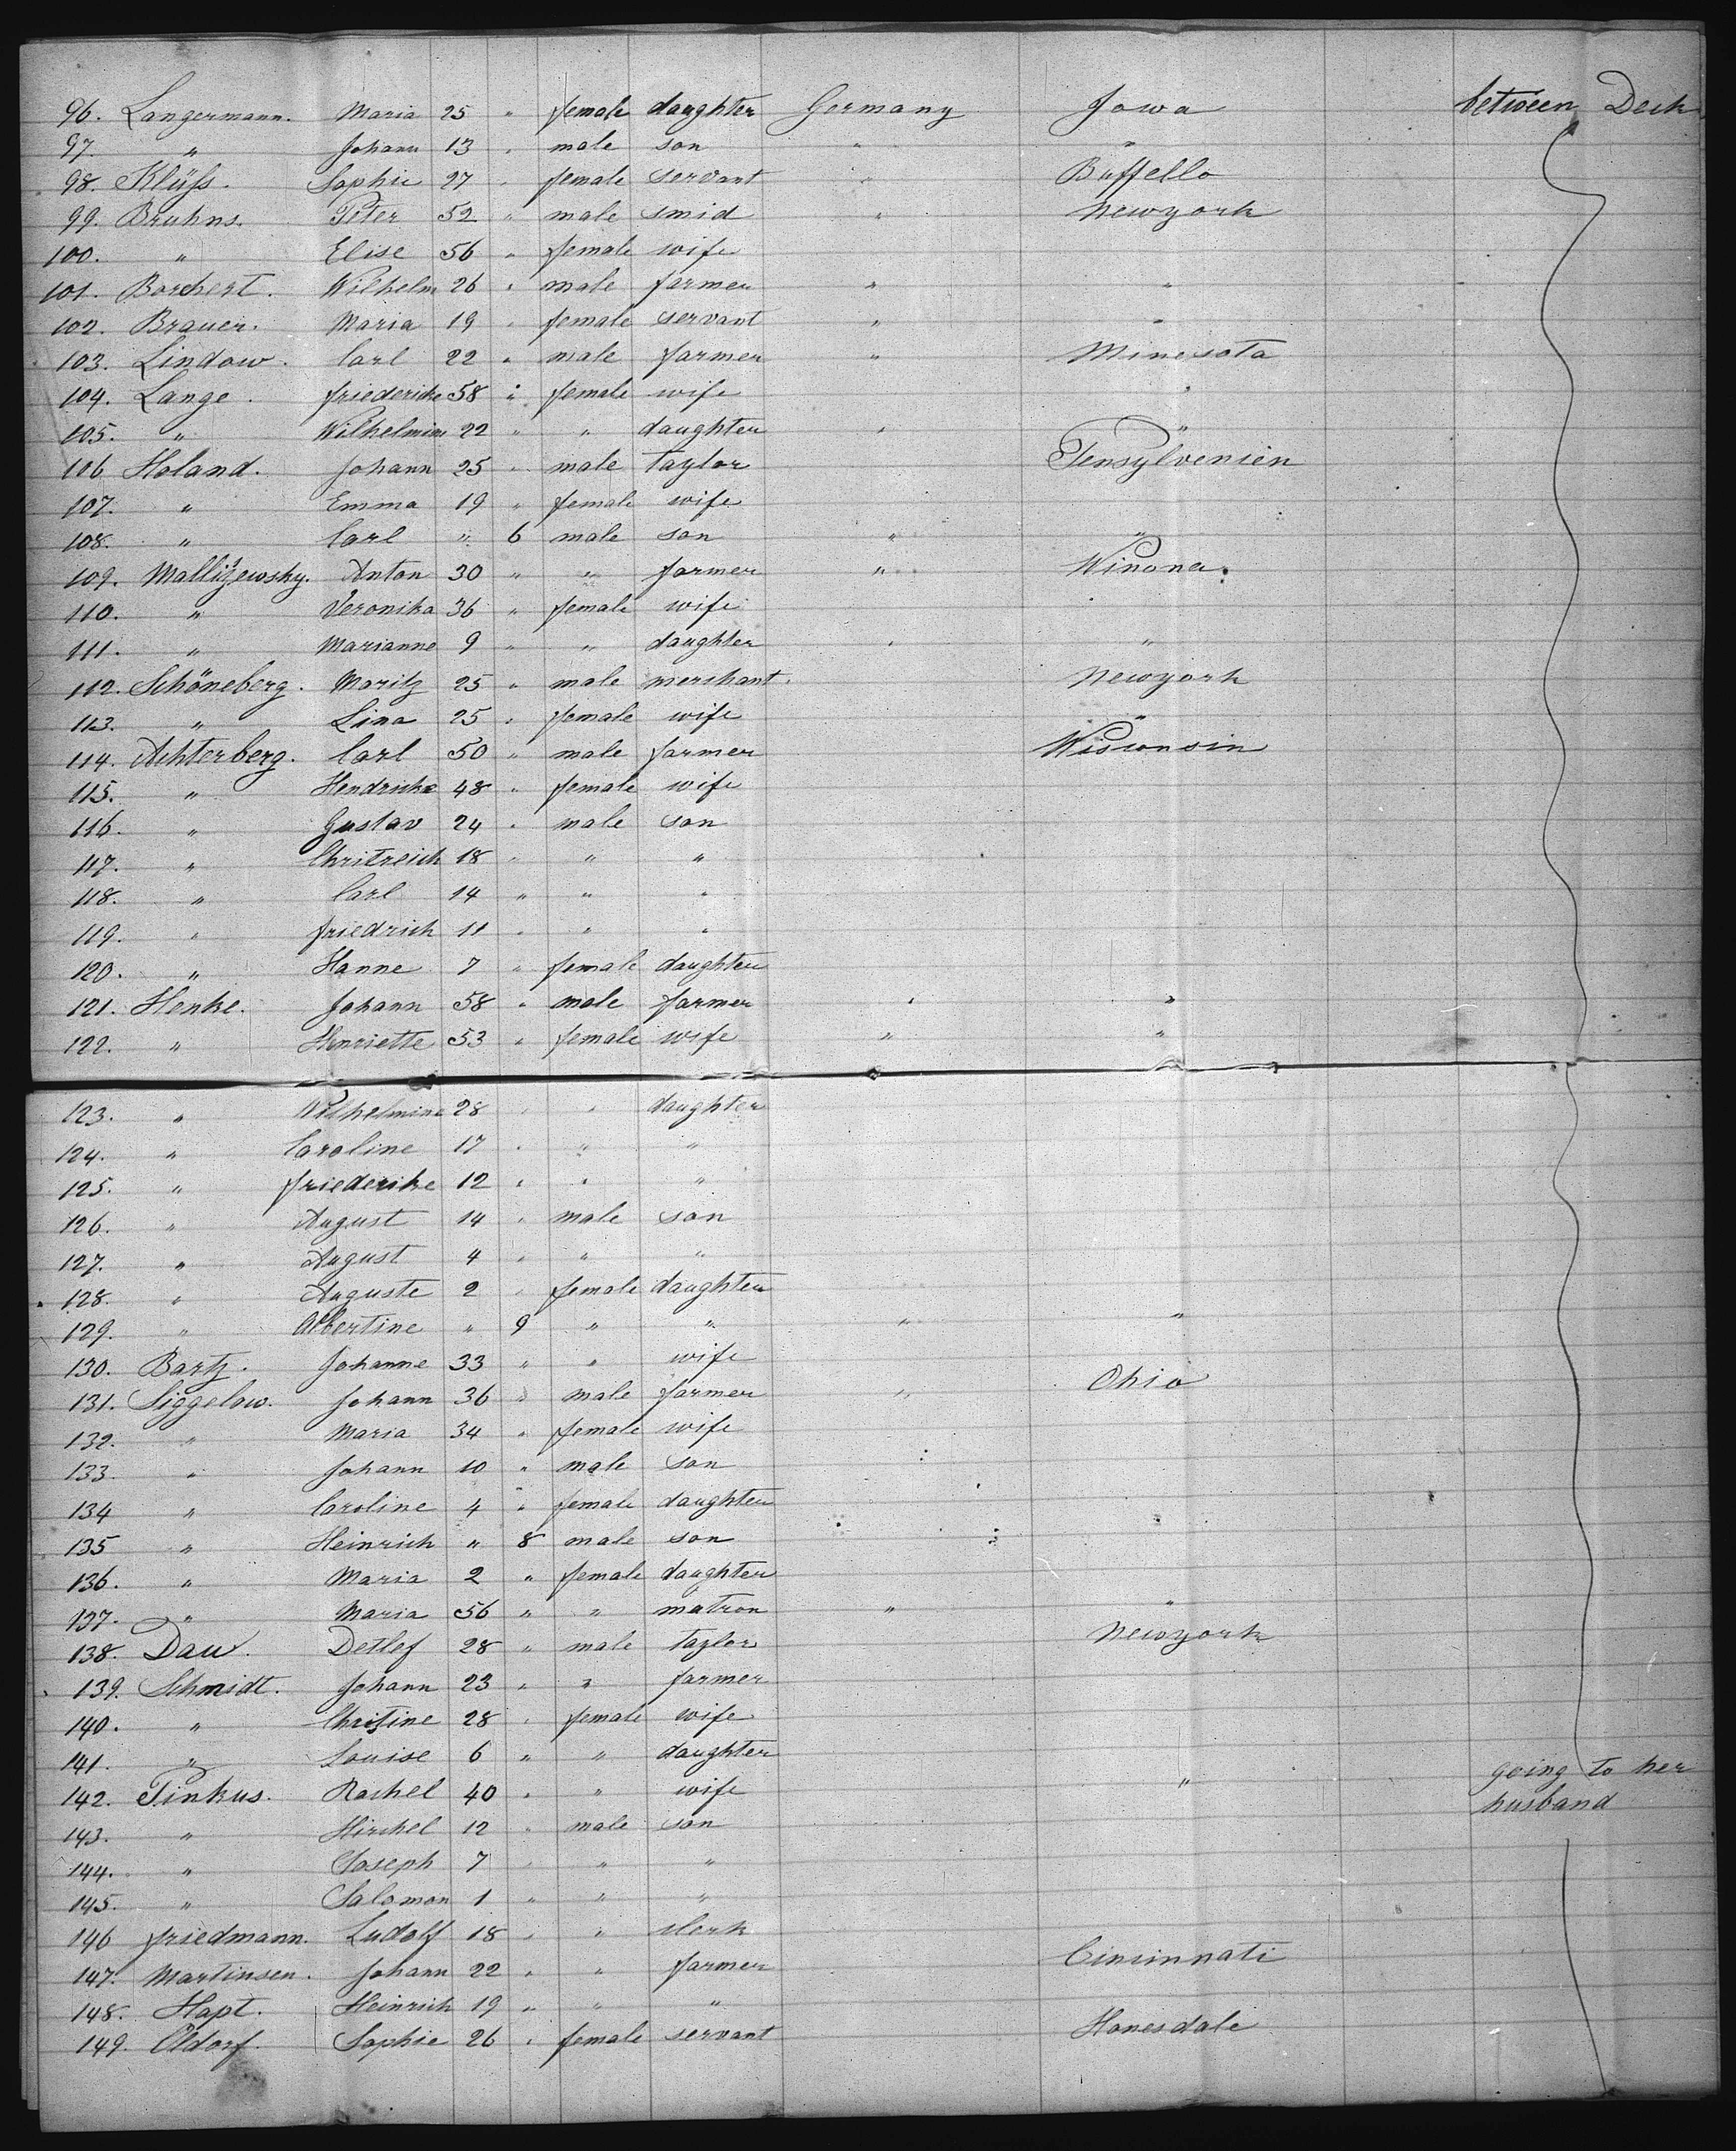 96. Langermann. Maria 25 " female daughter Germany Iowa between Deck
97. " Johann 13 " male son " "
98. Klüſs. Sophie 27 " female servant " Buffello
99. Bruhns. Peter 52 " male smid " Newyork
100. " Elise 56 " female wife
101. Borchert. Wilhelm 26 " male farmer " "
102. Brauer. Maria 19 " female servant " "
103. Lindow. Carl 22 " male farmer " Minesota
104. Lange. Friederike 58 " female wife "
105. " Wilhelmine 22 " " daughter " "
106 Holand. Johann 25 " male taylor Pensylvenien
107. " Emma 19 " female wife
108. " Carl " 6 male son " "
109. Mallizewsky. Anton 30 " " farmer " Winona.
110. " Veronika 36 " female wife
111. " Marianne 9 " " daughter " "
112. Schöneberg. Moritz 25 " male merchant. Newyork
113. " Lina 25 " female wife "
114. Achterberg. Carl 50 " male farmer Wisconsin
115. " Hendrike 48 " female wife
116. " Gustav 24 " male son
117. " Chritreich 18 " " "
118. " Carl 14 " " "
119. " Friedrich 11 " " "
120. " Hanne 7 " female daughter
121. Henke. Johann 58 " male farmer " "
122. " Henriette 53 " female wife " "
123. " Wilhelmine 28 " " daughter
124. " Caroline 17 " " "
125. " Friederike 12 " " "
126. " August 14 " male son
127. " August 4 " " "
128. " Auguste 2 " female daughter
129. " Albertine " 9 " " " "
130. Bartz. Johanne 33 " " wife
131. Siggelow. Johann 36 " male farmer " Ohio
132. " Maria 34 " female wife
133. " Johann 10 " male son
134 " Caroline 4 " female daughter
135 " Heinrich " 8 male son
136. " Maria 2 " female daughter
137. " Maria 56 " " matron " "
138. Dau. Detlef 28 " male taylor Newyork
139. Schmidt. Johann 23 " " farmer
140. " Christine 28 " female wife
141. " Louise 6 " " daughter
142. Pinkus. Rachel 40 " " wife " going to her husband
143. " Hirchel 12 " male son
144. " Joseph 7 " " "
145. " Salomon 1 " " "
146 Friedmann. Ludolf 18 " " clerk
147. Martinsen. Johann 22 " " farmer Cincinnati
148. Hapt. Heinrich 19 " " "
149. Oldorf. Sophie 26 " female servant Honesdale